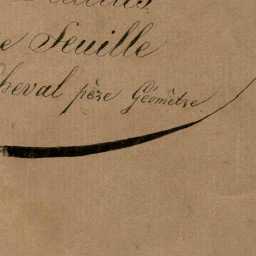 e Feuille
heval père Géomètre